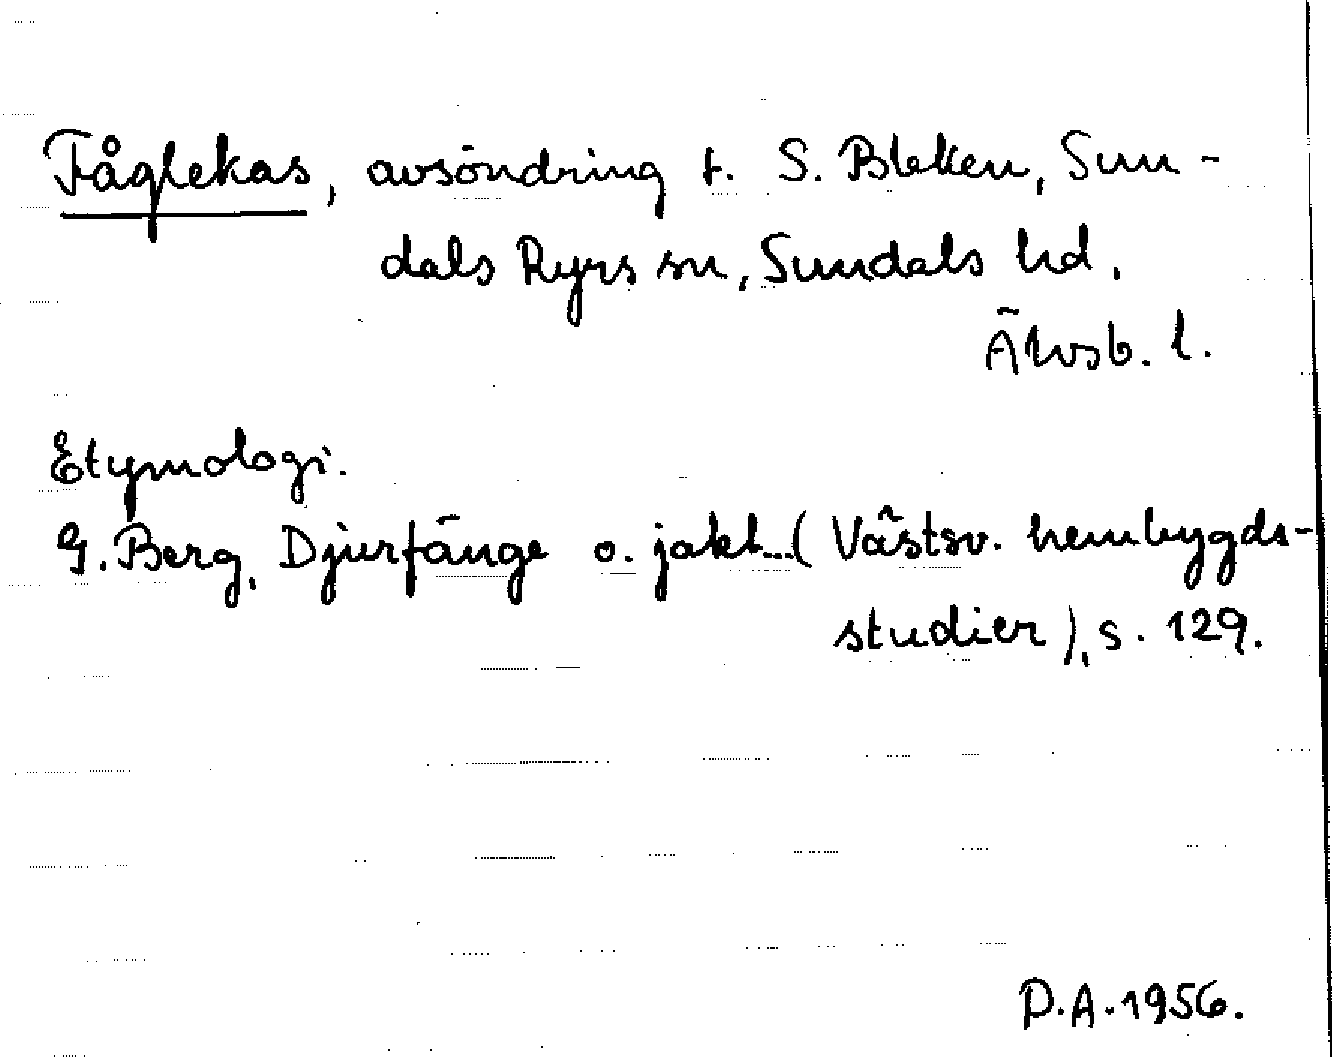 Fåglekas, avsöndring t. S. Bleken, Sun-
dals Ryrs sn, Sundals hd.
Älvsb. l.
Etymologi.
G. Berg, Djurfänge o. jakt...( Västsv. hembygds-
studier), s. 129.
D.A. 1956.